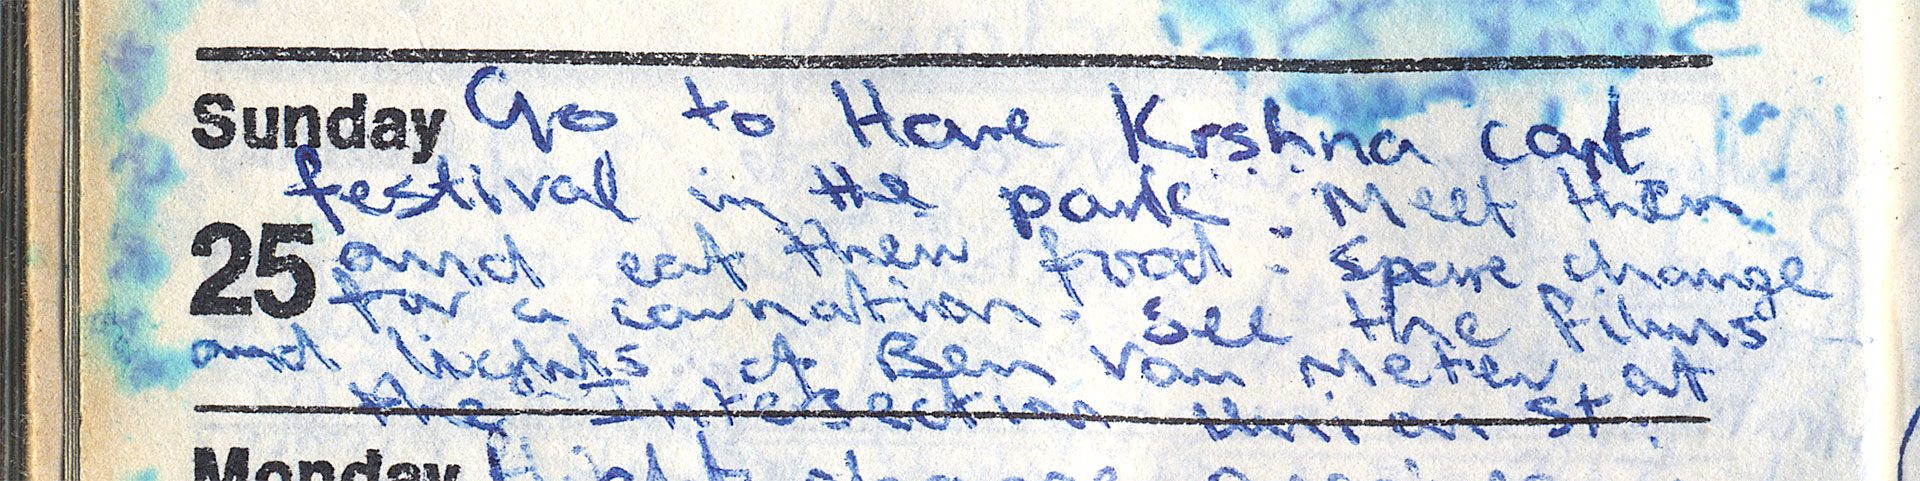 Sunday Go to Hare Krshna cart
festival in the park. Meet them
25 and eat their food. Spare change
for a carnation. See the films
and lights of Ben Van Meter at
the Intersection Union St.
Monday